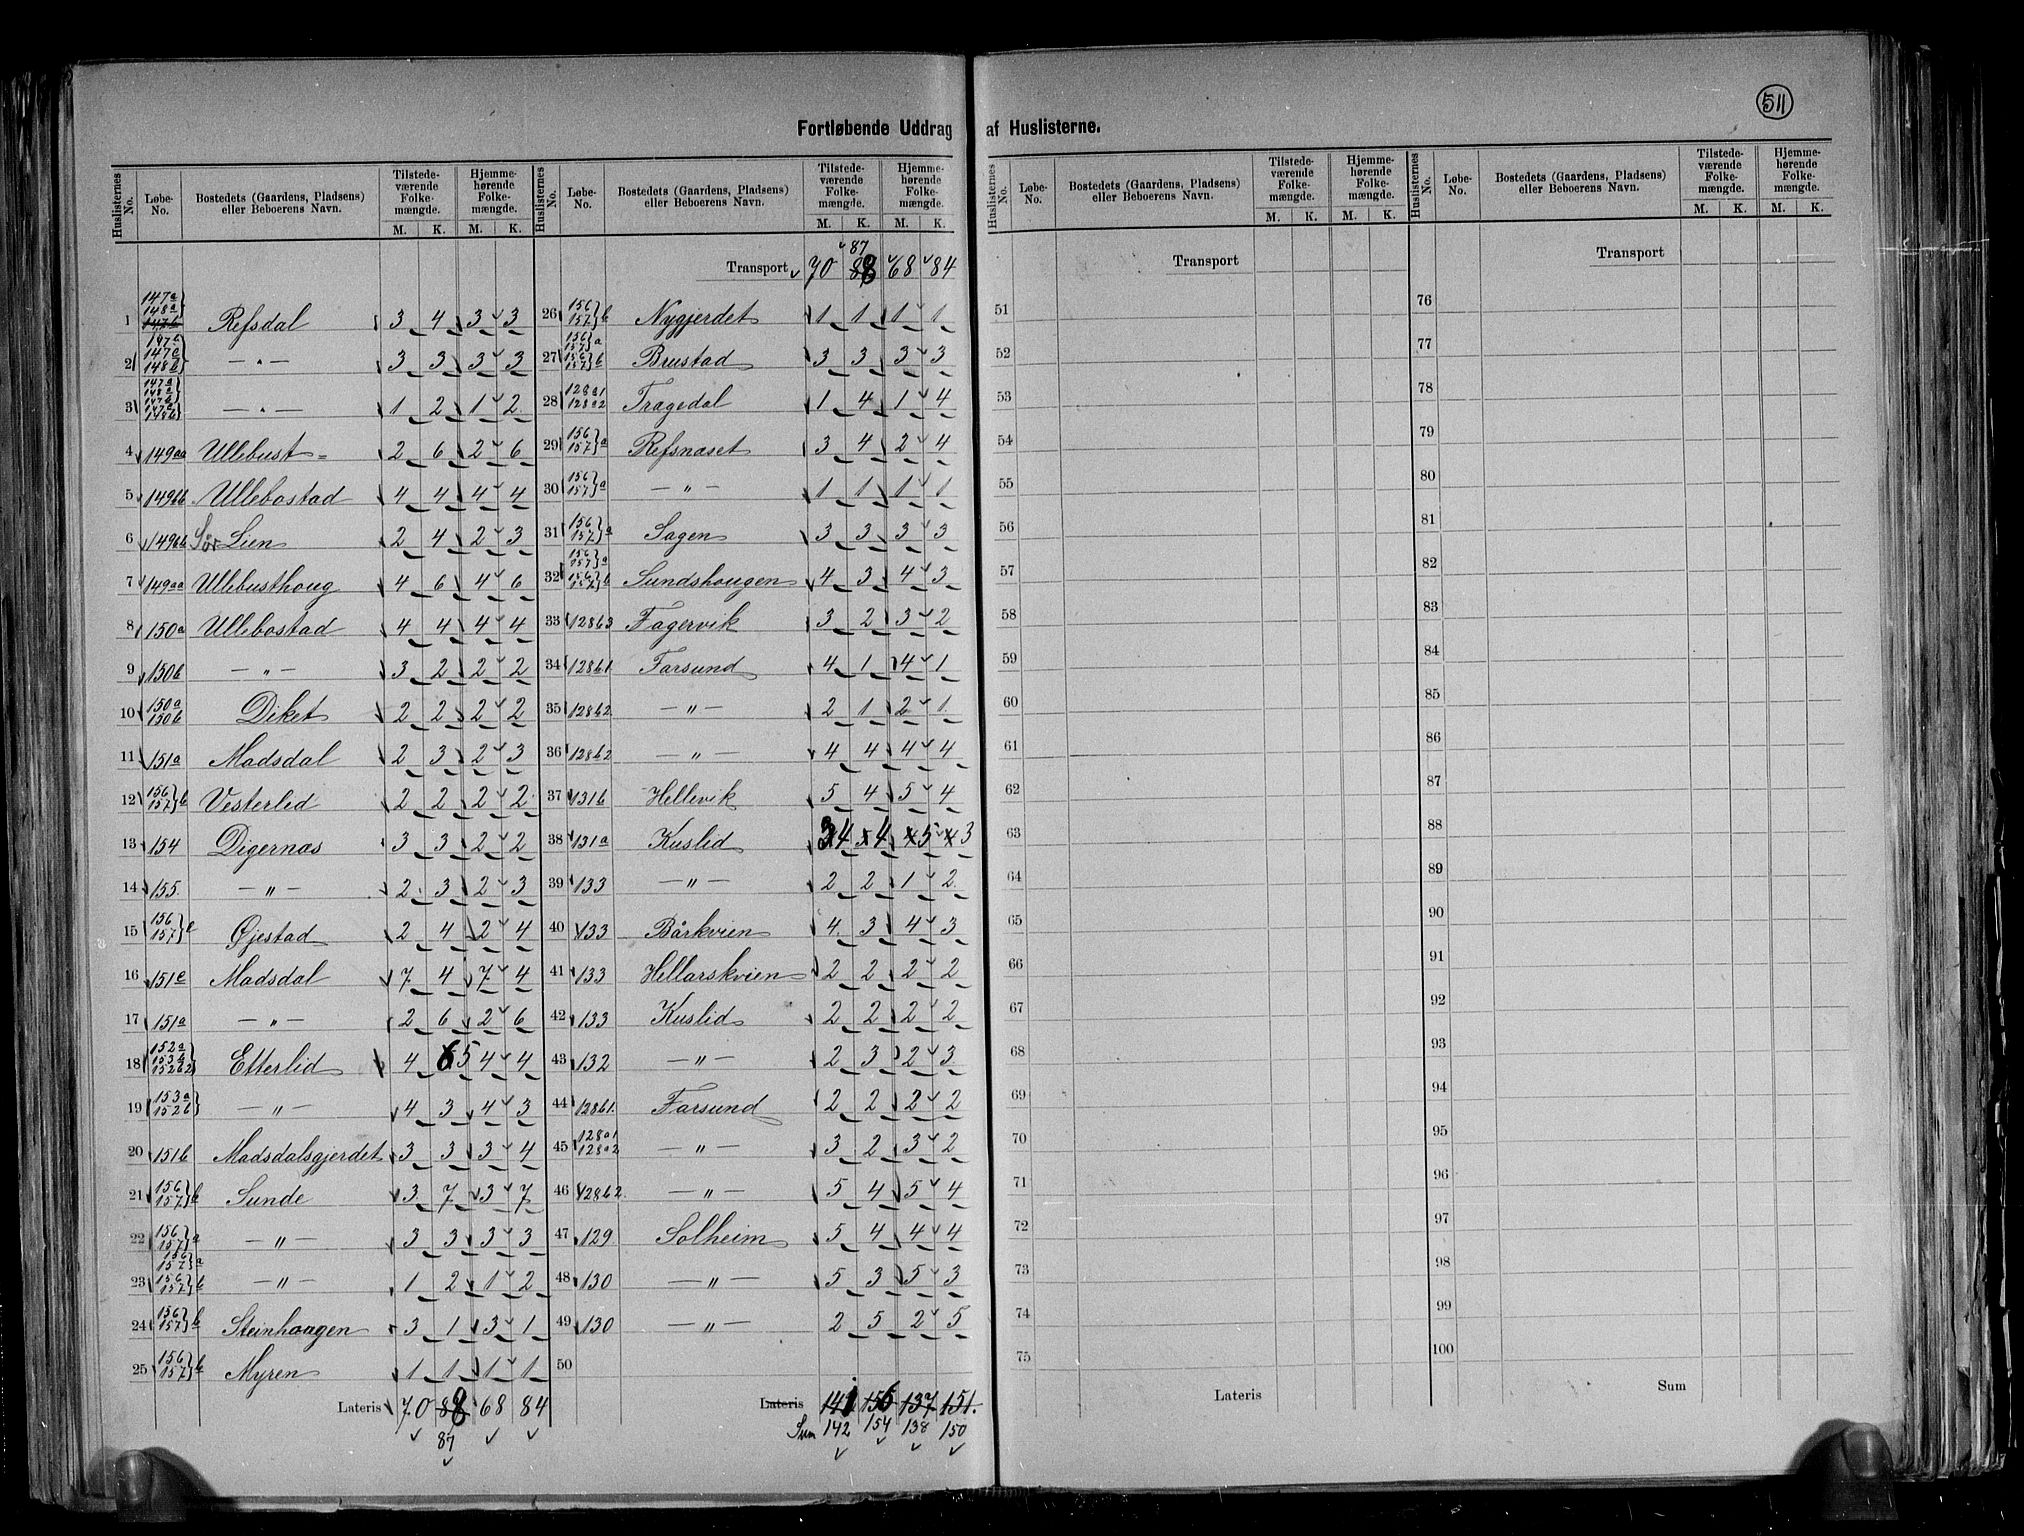 511
Fortløbende Uddrag af Huslisterne.
Huslisternes No. | Løbe-No. | Bostedets (Gaardens, Pladsens) eller Beboerens Navn. | Tilstedeværende Folkemængde. M. K. | Hjemmehørende Folkemængde. M. K.
1 147a 148a 147b Refsdal 3 4 3 3
2 147b 147c 148b — " — 3 3 3 3
3 147a 148a 147b 147c 148b — " — 1 2 1 2
4 149aa Ullebust 2 6 2 6
5 149bb Ullebostad 4 4 4 4
6 149bb Sør Lien 2 4 2 3
7 149aa Ullebusthoug 4 6 4 6
8 150a Ullebostad 4 4 4 4
9 150b — " — 3 2 2 2
10 150a 150b Diket 2 2 2 2
11 151a Madsdal 2 3 2 3
12 156 157 b Vesterlid 2 2 2 2
13 154 Digernæs 3 3 2 2
14 155 — " — 2 3 2 3
15 156 157 b Øjestad 2 4 2 4
16 151c Madsdal 7 4 7 4
17 151a — " — 2 6 2 6
18 152a 153b 152b2 Etterlid 4 6 5 4 4
19 153a 152b — " — 4 3 4 3
20 151b Madsdalsgjerdet 3 3 3 4
21 156 157 b Sunde 3 7 3 7
22 156 157 a — " — 3 3 3 3
23 156 157 a 156 157 b — " — 1 2 1 2
24 156 157 b Steinhaugen 3 1 3 1
25 156 157 b Myren 1 1 1 1
Lateris 70 88 68 84
87
87
Transport 70 88 68 84
26 156 157 b Nygjerdet 1 1 1 1
27 156 157 a 156 157 b Brustad 3 3 3 3
28 128a1 128a2 Tragedal 1 4 1 4
29 156 157 a Refsnæset 3 4 2 4
30 156 157 a — " — 1 1 1 1
31 156 157 a Sagen 3 3 3 3
32 156 157 a 156 157 b Sundshougen 4 3 4 3
33 128b3 Fagervik 3 2 3 2
34 128b1 Farsund 4 1 4 1
35 128b2 — " — 2 1 2 1
36 128b2 — " — 4 4 4 4
37 131b Hellevik 5 4 5 4
38 131a Kuslid 4 4 5 3
39 133 — " — 2 2 1 2
40 133 Bårkvien 4 3 4 3
41 133 Hellarskvien 2 2 2 2
42 133 Kuslid 2 2 2 2
43 132 — " — 2 3 2 3
44 128b1 Farsund 2 2 2 2
45 128a1 128a2 — " — 3 2 3 2
46 128b2 — " — 5 4 5 4
47 129 Solheim 5 4 4 4
48 130 — " — 5 3 5 3
49 130 — " — 2 5 2 5
50
Lateris 141 156 137 151.
Sum 142 154 138 150
Huslisternes No. | Løbe-No. | Bostedets (Gaardens, Pladsens) eller Beboerens Navn. | Tilstedeværende Folkemængde. M. K. | Hjemmehørende Folkemængde. M. K.
Transport
51
52
53
54
55
56
57
58
59
60
61
62
63
64
65
66
67
68
69
70
71
72
73
74
75
Lateris
Huslisternes No. | Løbe-No. | Bostedets (Gaardens, Pladsens) eller Beboerens Navn. | Tilstedeværende Folkemængde. M. K. | Hjemmehørende Folkemængde. M. K.
Transport
76
77
78
79
80
81
82
83
84
85
86
87
88
89
90
91
92
93
94
95
96
97
98
99
100
Sum